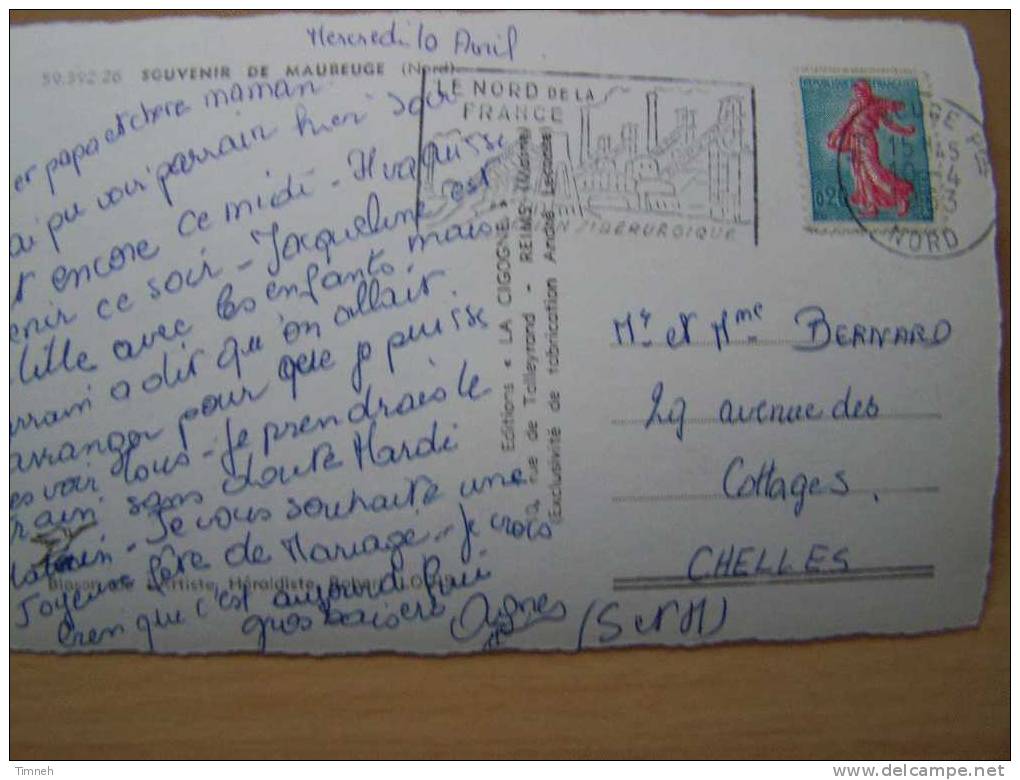 Mercredi 10 Avril
59.392.26 SOUVENIR DE MAUBEUGE (Nord)
er papa et chère maman
ai pu voir parrain hier soir
et encore ce midi - Il va
enir ce soir - Jacqueline est
Lille avec les enfants mais
rrain a dit qu'on allait
arranger pour que je puisse
es voir tous - Je prendrais le
rain sans doute Mardi
matin - Je vous souhaite une
Joyeuse fête de Mariage - Je crois
bien que c'est aujourd'hui
gros baisers Agnes
Blason de Artiste Héraldiste, Robert LOUIS
Editions « LA CIGOGNE »
rue de Talleyrand - REIMS (Marne)
(Exclusivité de fabrication André Leconte)
LE NORD DE LA
FRANCE
REGION SIDERURGIQUE
REPUBLIQUE FRANÇAISE
0,20
15 45
NORD
Mr et Mme BERNARD
29 avenue des
Cottages.
CHELLES
(S et M)
Timneh
delcampe.net